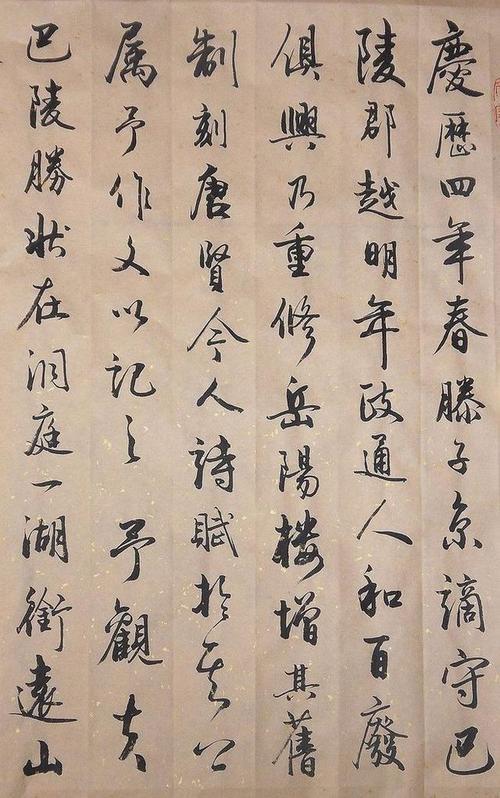 慶歷四年春滕子京謫守巴
陵郡越明年政通人和百廢
俱興乃重修岳陽樓增其舊
制刻唐賢今人詩賦於其上
属予作文以記之予觀夫
巴陵勝狀在洞庭一湖銜遠山